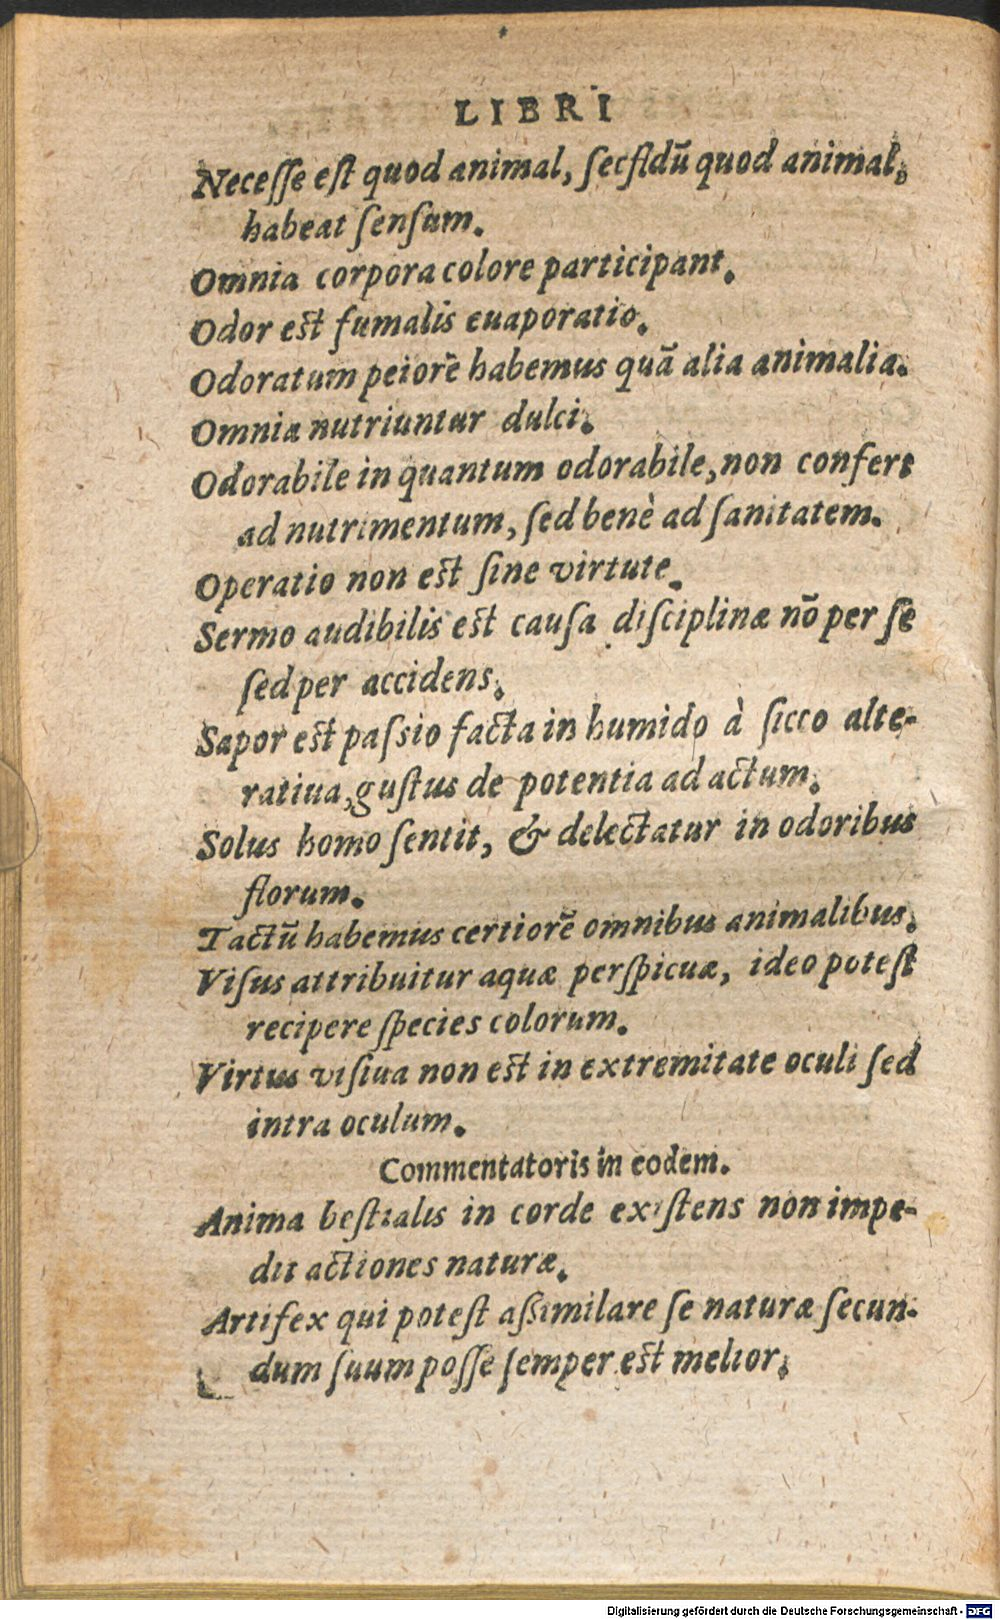 LIBRI
Necesſe eſt quod animal, ſecſldū quod animal,
habeat ſenſum.
Omnia corpora colore participant.
Odor eſt fumalis euaporatio.
Odoratum peiorē habemus quā alia animalia.
Omnia nutriuntur dulci.
Odorabile in quantum odorabile, non confert
ad nutrimentum, ſed benè ad ſanitatem.
Operatio non eſt ſine virtute.
Sermo audibilis eſt cauſa diſciplinæ nō per ſe
ſed per accidens.
Sapor eſt paſsio facta in humido à ſicco alte-
ratiua, guſtus de potentia ad actum.
Solus homo ſentit, & delectatur in odoribus
florum.
Tactū habemus certiorē omnibus animalibus.
Viſus attribuitur aquæ perſpicuæ, ideo poteſt
recipere ſpecies colorum.
Virtus viſiua non eſt in extremitate oculi ſed
intra oculum.
Commentatoris in eodem.
Anima beſtialis in corde exiſtens non impe-
dit actiones naturæ.
Artifex qui poteſt aſsimilare ſe naturæ ſecun-
dum ſuum poſſe ſemper eſt melior.
Digitalisierung gefördert durch die Deutsche Forschungsgemeinschaft - DFG